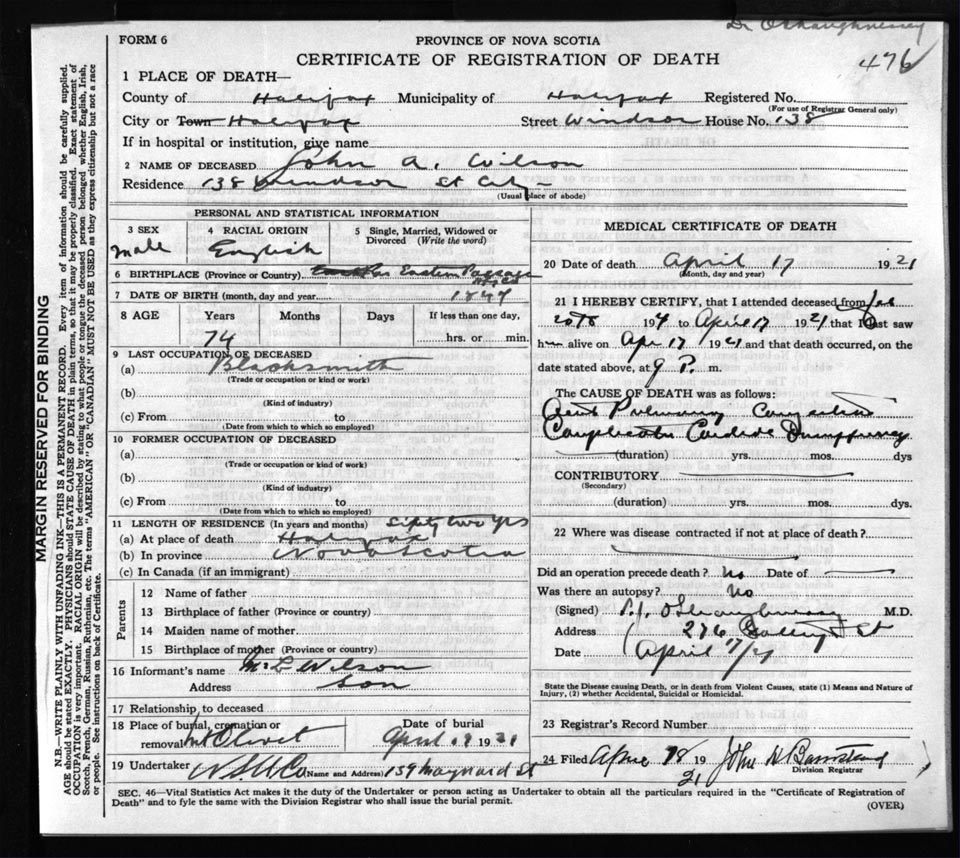 Dr O'Shaughnessy
476
FORM 6
PROVINCE OF NOVA SCOTIA
CERTIFICATE OF REGISTRATION OF DEATH
1 PLACE OF DEATH—
County of Halifax Municipality of Halifax Registered No.
(For use of Registrar General only)
City or Town Halifax Street Windsor House No. 138
If in hospital or institution, give name
2 NAME OF DECEASED John A. Wilson
Residence 138 Windsor St City
(Usual place of abode)
PERSONAL AND STATISTICAL INFORMATION
3 SEX
male
4 RACIAL ORIGIN
English
5 Single, Married, Widowed or Divorced (Write the word)
6 BIRTHPLACE (Province or Country) Eastern Passage
7 DATE OF BIRTH (month, day and year) 1847
8 AGE Years Months Days If less than one day,
74 hrs. or min.
9 LAST OCCUPATION OF DECEASED
(a) Blacksmith
(Trade or occupation or kind or work)
(b)
(Kind of industry)
(c) From to
(Date from which to which so employed)
10 FORMER OCCUPATION OF DECEASED
(a)
(Trade or occupation or kind of work)
(b)
(Kind of industry)
(c) From to
(Date from which to which so employed)
11 LENGTH OF RESIDENCE (In years and months) Sixty two yrs
(a) At place of death Halifax
(b) In province Nova Scotia
(c) In Canada (if an immigrant)
Parents
12 Name of father
13 Birthplace of father (Province or country)
14 Maiden name of mother
15 Birthplace of mother (Province or country)
16 Informant's name Wilson
Address son
17 Relationship to deceased
18 Place of burial, cremation or removal Mt Olivet
Date of burial
April 19 1921
19 Undertaker (Name and Address) 139 Maynard St
MEDICAL CERTIFICATE OF DEATH
20 Date of death April 17 1921
(Month, day and year)
21 I HEREBY CERTIFY, that I attended deceased from Feb
20th 19 to April 17 1921 that I last saw
him alive on Apr 17 1921 and that death occurred, on the
date stated above, at 9 P. m.
The CAUSE OF DEATH was as follows:
Acute Pulmonary Congestion
Cardiac
(duration) yrs. mos. dys
CONTRIBUTORY
(Secondary)
(duration) yrs. mos. dys.
22 Where was disease contracted if not at place of death?
Did an operation precede death? No Date of
Was there an autopsy? No
(Signed) P.J. O'Shaughnessy M.D.
Address 276 St
Date April 17/21
State the Disease causing Death, or in death from Violent Causes, state (1) Means and Nature of
Injury, (2) whether Accidental, Suicidal or Homicidal.
23 Registrar's Record Number
24 Filed April 18 1921 John
Division Registrar
SEC. 46—Vital Statistics Act makes it the duty of the Undertaker or person acting as Undertaker to obtain all the particulars required in the "Certificate of Registration of
Death" and to fyle the same with the Division Registrar who shall issue the burial permit.
(OVER)
MARGIN RESERVED FOR BINDING
N.B.—WRITE PLAINLY WITH UNFADING INK—THIS IS A PERMANENT RECORD. Every item of information should be carefully supplied.
AGE should be stated EXACTLY. PHYSICIANS should STATE CAUSE OF DEATH in plain terms, so that it may be properly classified. Exact statement of
OCCUPATION is very important. RACIAL ORIGIN will be described by stating to what people or tongue the deceased person belonged whether English, Irish,
Scotch, French, German, Russian, Ruthenian, etc. The terms "AMERICAN" OR "CANADIAN" MUST NOT BE USED as they express citizenship but not a race
or people. See instructions on back of Certificate.